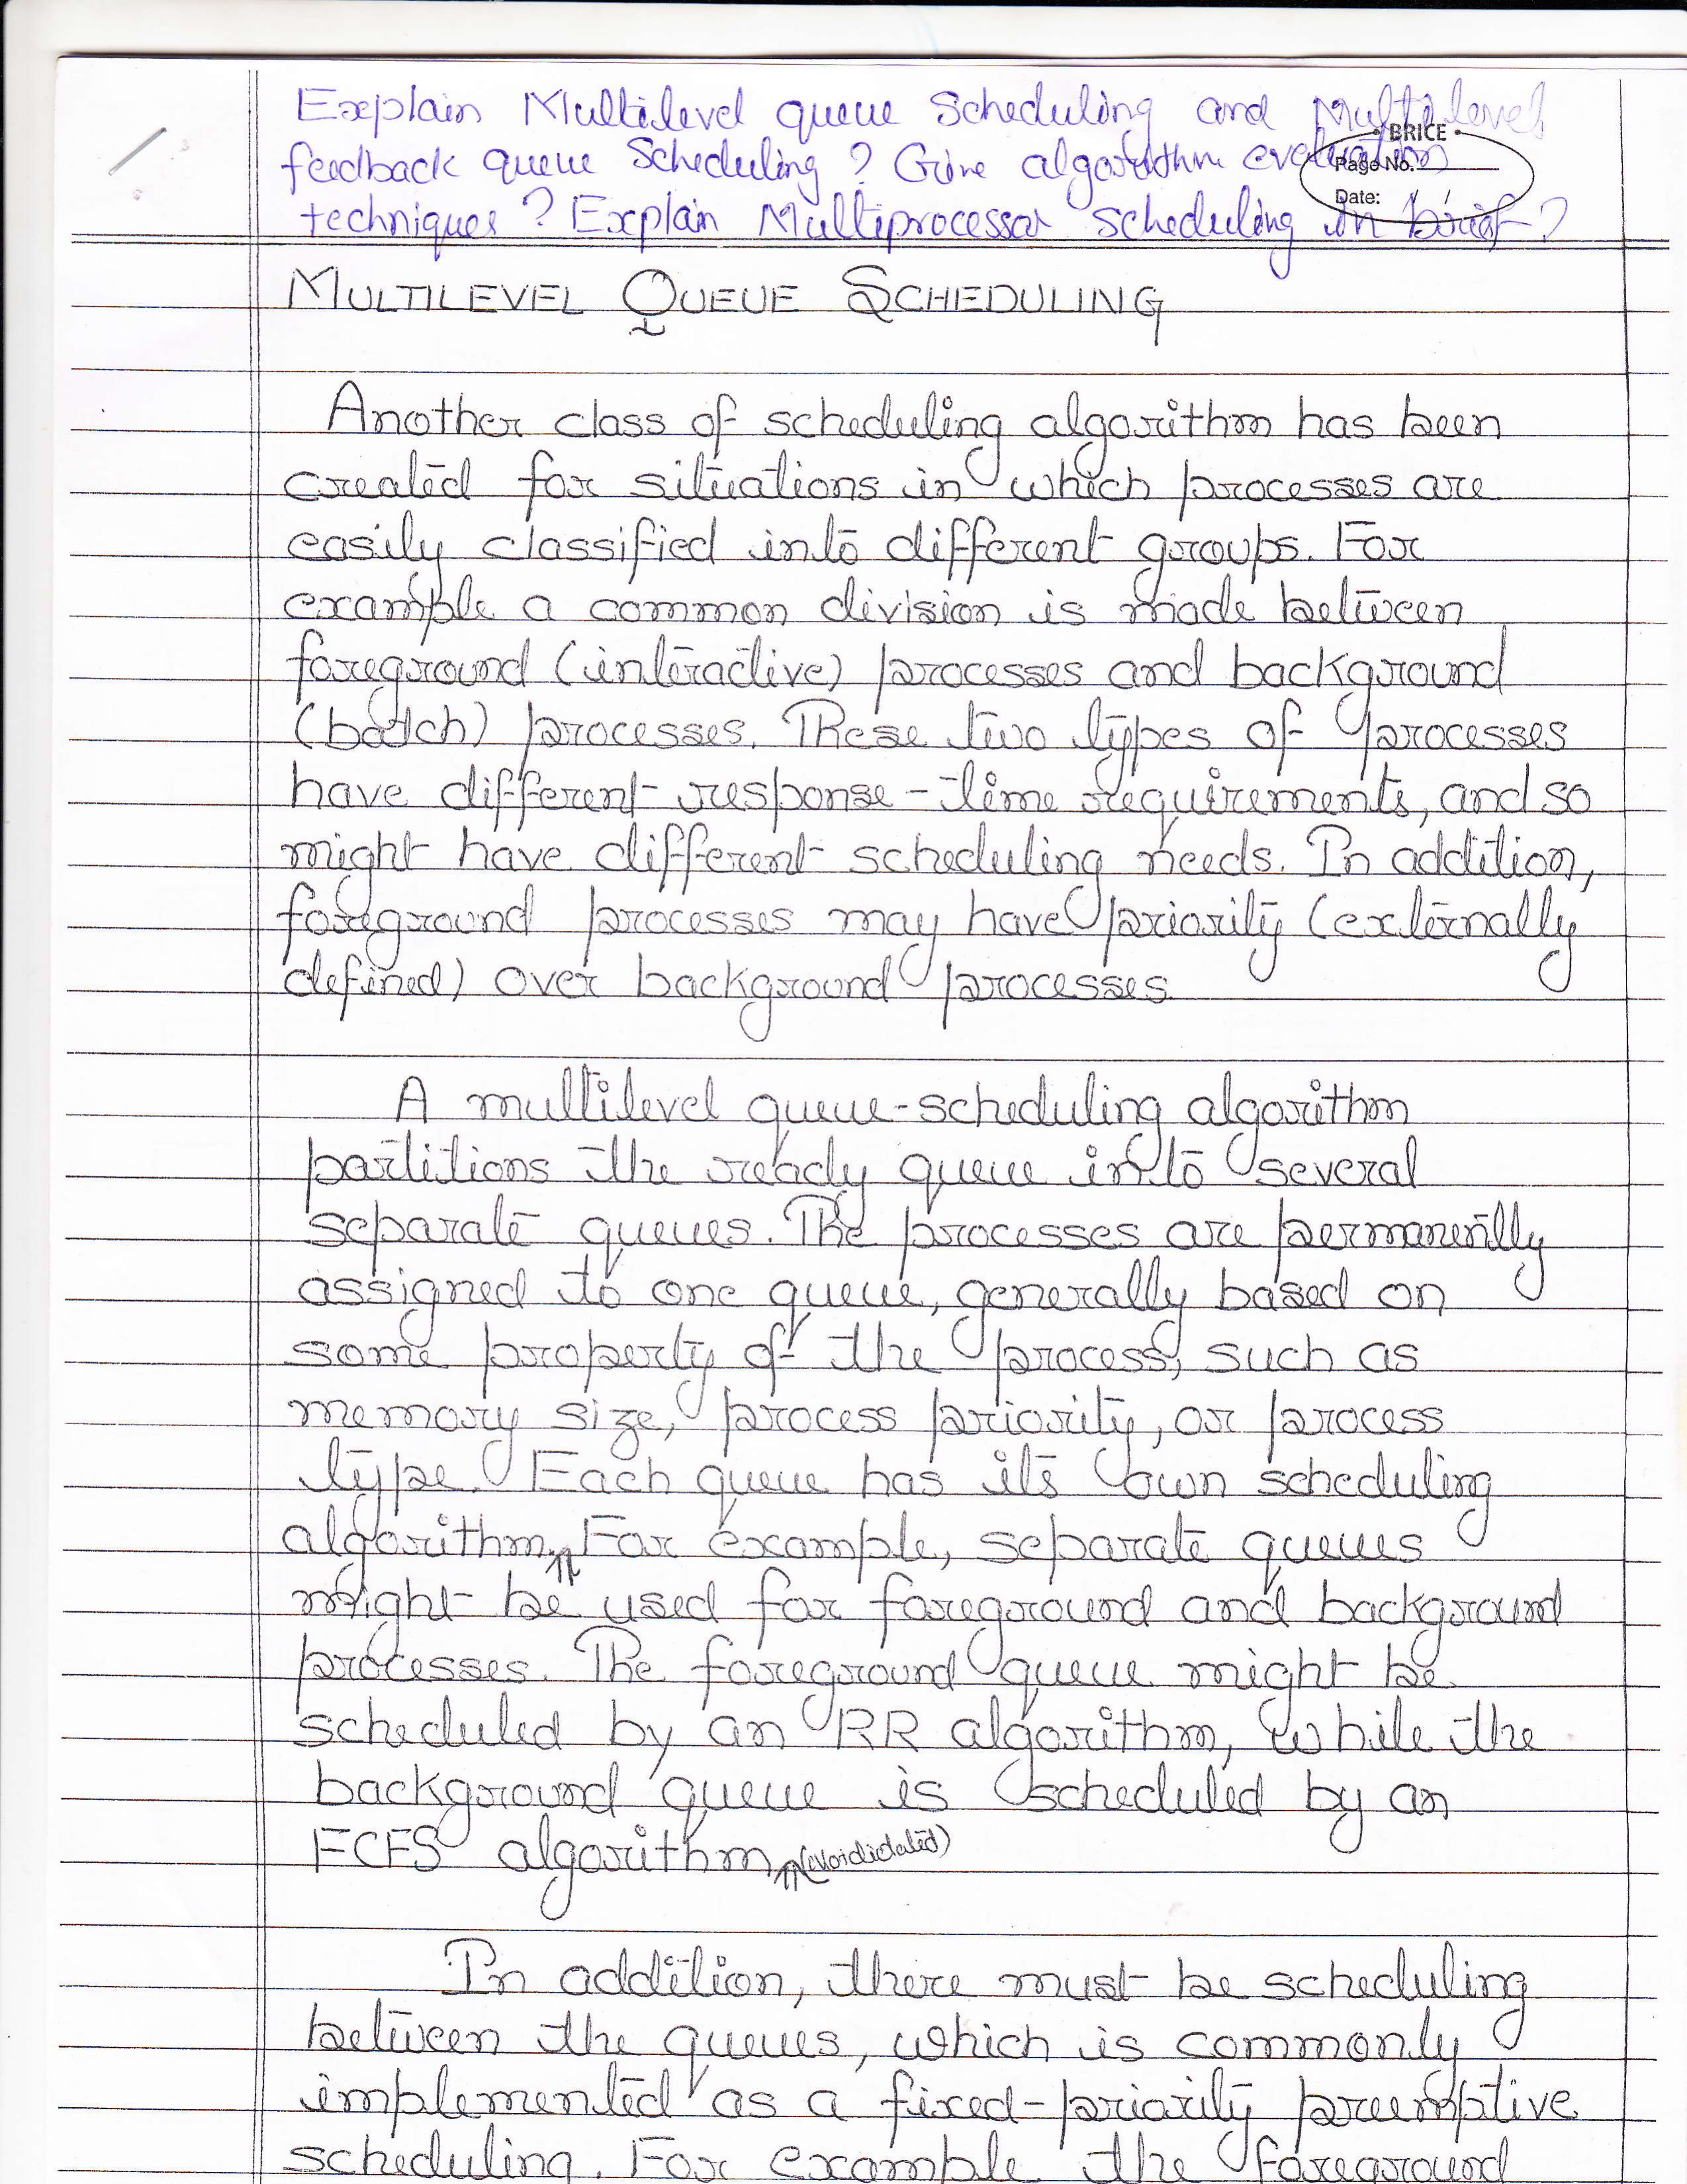 Explain Multilevel queue Scheduling and Multilevel
feedback queue Scheduling ? Give algorithm evaluation
techniques ? Explain Multiprocessor Scheduling in brief ?
BRICE
Page No.
Date: / /
MULTILEVEL QUEUE SCHEDULING
Another class of scheduling algorithm has been
created for situations in which processes are
easily classified into different groups. For
example a common division is made between
foreground (interactive) processes and background
(batch) processes. These two types of processes
have different response-time requirements, and so
might have different scheduling needs. In addition,
foreground processes may have priority (externally
defined) over background processes.
A multilevel queue-scheduling algorithm
partitions the ready queue into several
separate queues. The processes are permanently
assigned to one queue, generally based on
some property of the process, such as
memory size, process priority, or process
type. Each queue has its own scheduling
algorithm. For example, separate queues
might be used for foreground and background
processes. The foreground queue might be
scheduled by an RR algorithm, while the
background queue is scheduled by an
FCFS algorithm
In addition, there must be scheduling
between the queues, which is commonly
implemented as a fixed-priority preemptive
scheduling. For example the foreground